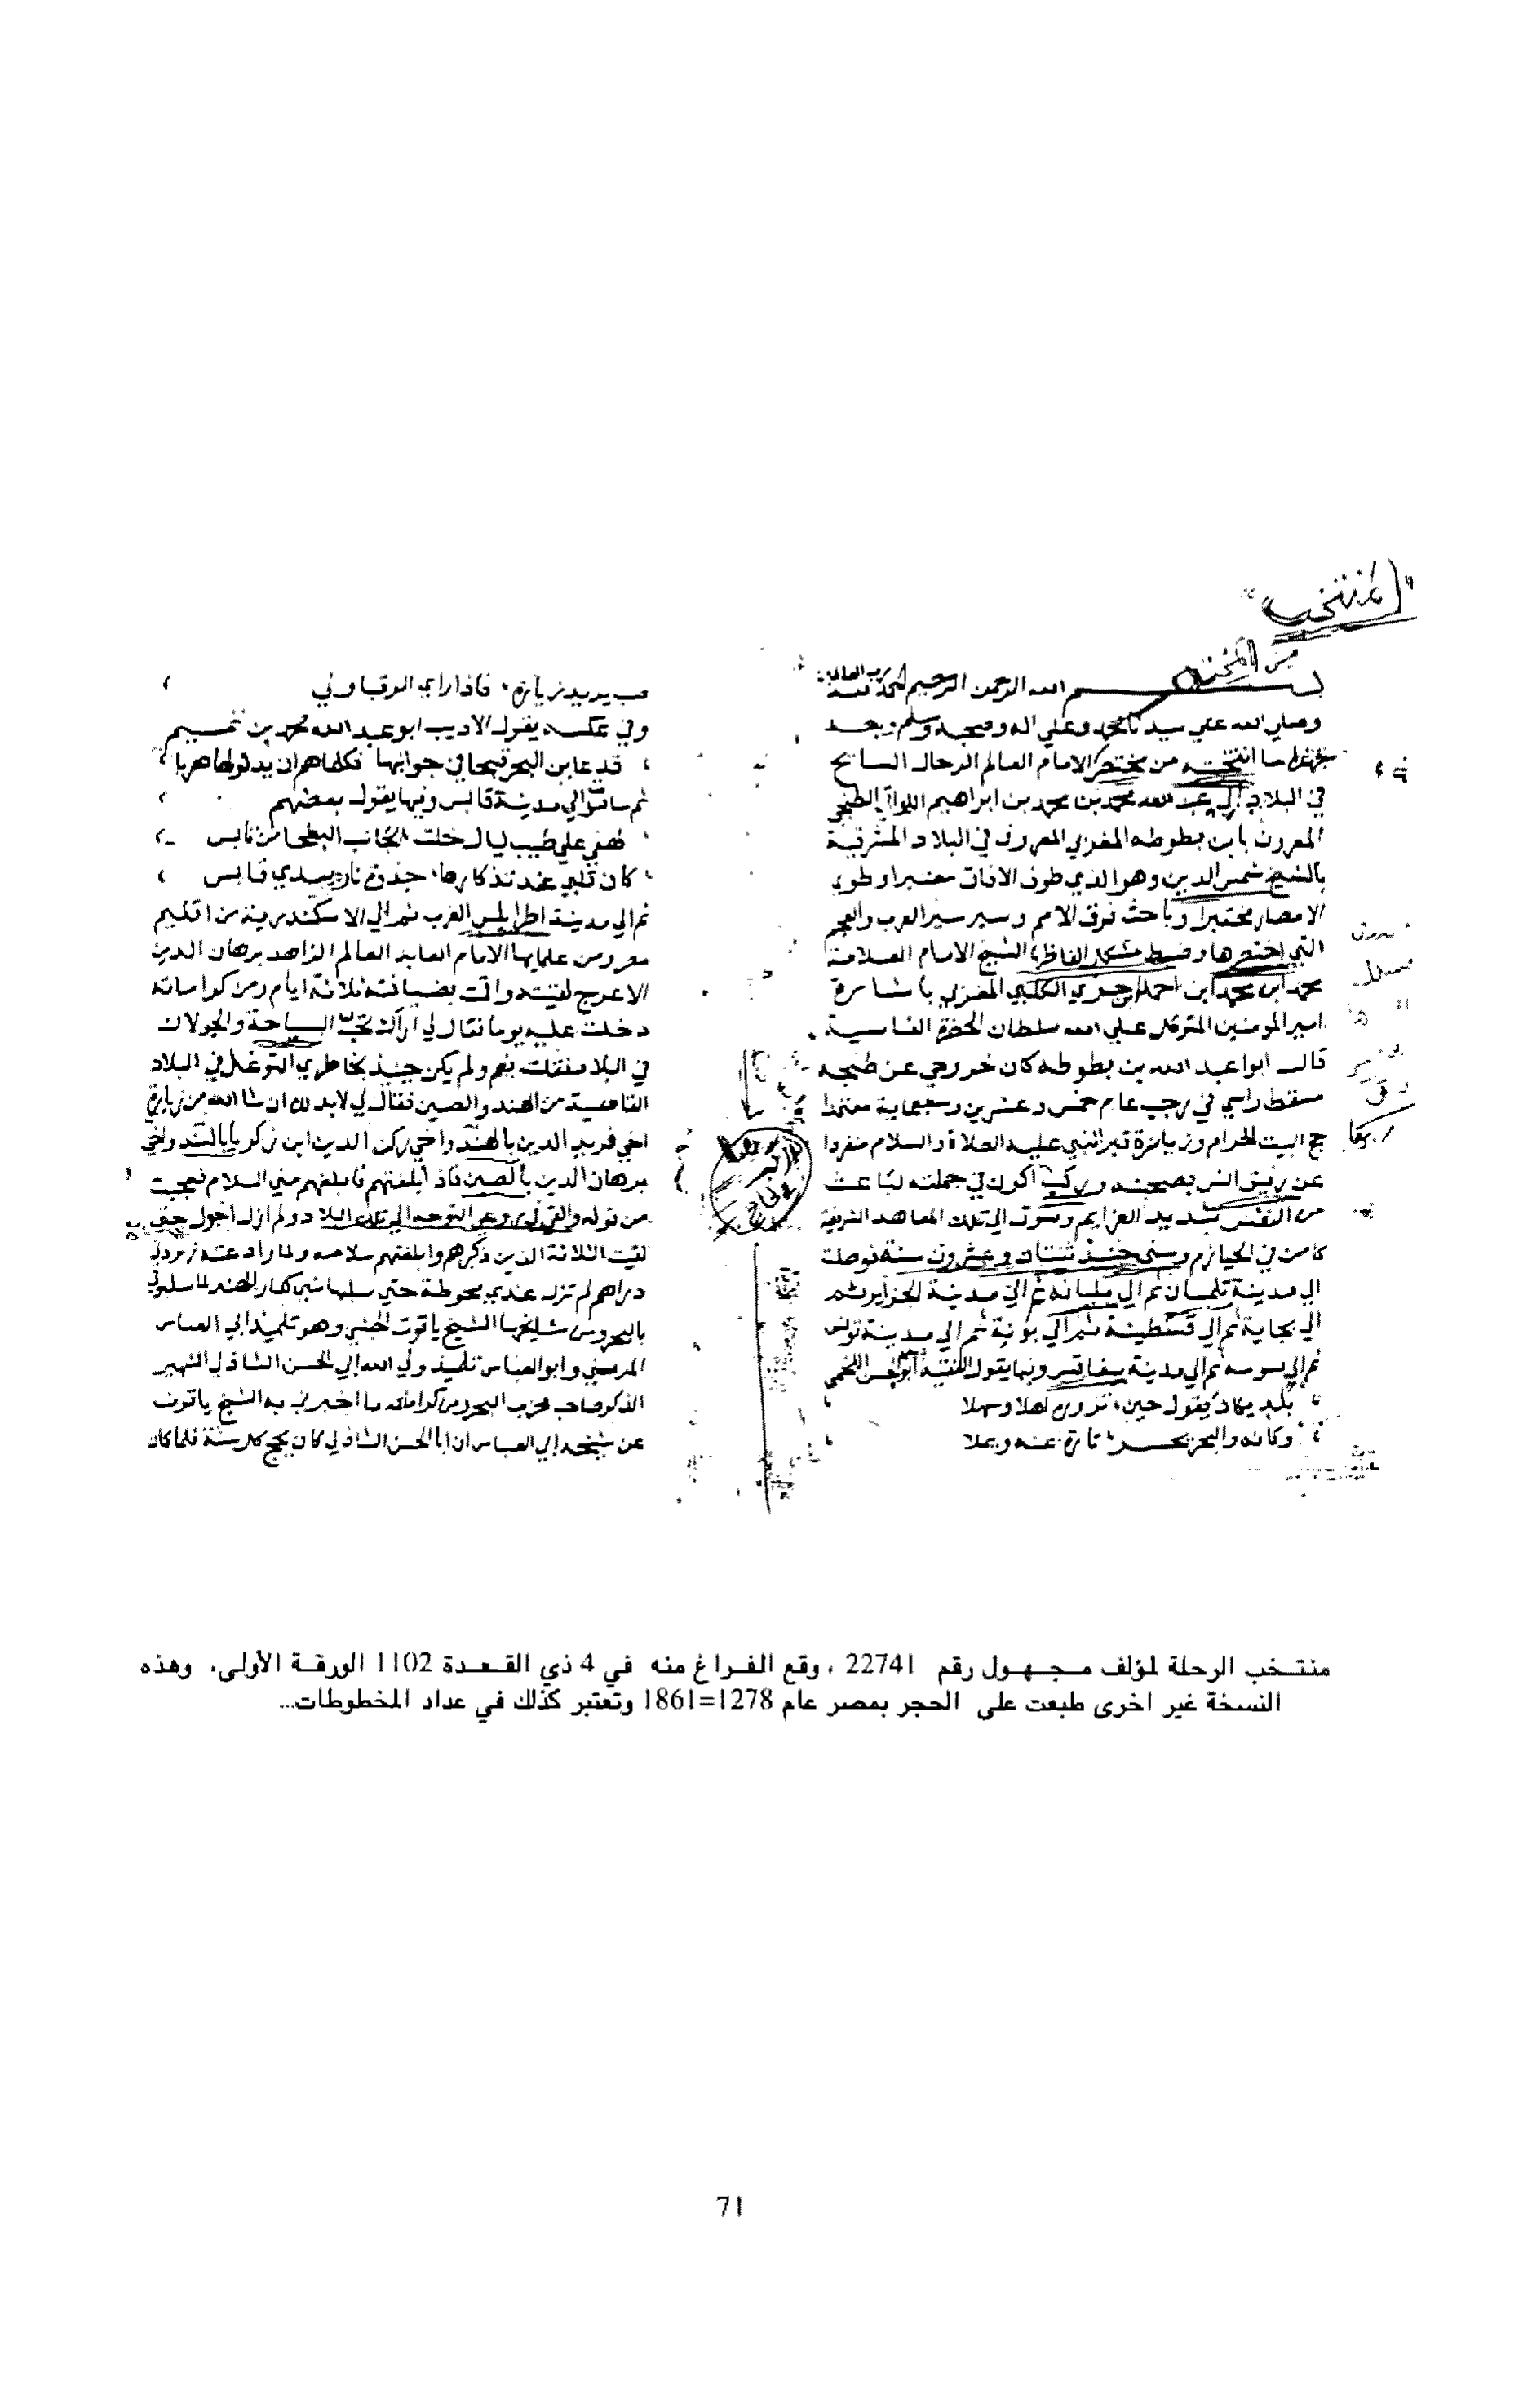 "المنتخب"
من المختصر
بسم الله الرحمن الرحيم الحمد لله رب العالمين
وصلي الله علي سيدنا محمد وعلي اله وصحبه وسلم وبعد
ما انتخبته من مختصر الامام العالم الرحال السايح
في البلاد ابي عبد الله محمد بن محمد بن ابراهيم اللواتي الطنجي
المعروف بابن بطوطه المغربي المعروف في البلاد المشرقية
بالشيخ شمس الدين وهو الذي طوف الافاق معتبرا وطوي
الامصار مختبرا وباحث فرق الامم وسبر سير العرب والعجم
التي اختصرها وضبط مشكل الفاظها الشيخ الامام العلامة
محمد ابن محمد ابن احمد ابن جزي الكلبي المغربي باشارة
امير المومنين المتوكل علي الله سلطان الحضرة الفاسية
قال ابوا عبد الله بن بطوطه كان خروجي عن طنجه
مسقط راسي في رجب عام خمس وعشرين وسبعماية معتمدا
حج البيت الحرام وزيارة قبر النبي عليه الصلاة والسلام منفردا
عن رفيق انس بصحبته وركب اكون في جملته لباعث
من النفس شديد العزايم وشوق الي تلك المعاهد الشريفة
كامن في الحيازم وسني حينئذ ثنتان وعشرون سنة فوصلت
الي مدينة تلمسان ثم الي مليانه ثم الي مدينة الجزاير ثم
الي بجاية ثم الي قسنطينة ثم الي بونة ثم الي مدينة تونس
ثم الي سوسه ثم الي مدينة سفاقس وبها يقول الفقيه ابو الحسن اللخمي
بلد يكاد يقول حين تزوره اهلا وسهلا
وكانه والبحر يحسر تارة عنه ويملا
صب يريد زيارة فاذا راي الرقبا ولي
وفي عكسه يقول الاديب ابو عبد الله محمد بن تميم
قد عاين البحر قبحا في جوانبها فكلما هم ان يدنو لها هربا
ثم سافرت الي مدينة قابس وفيها يقول بعضهم
لهفي علي طيب ليال خلت بجانب البطحا من قابس
كان قلبي عند تذكارها جذوة نار بيدي قابس
ثم الي مدينة اطرابلس الغرب ثم الي الاسكندرية من اقليم
مصر ومن علمايها الامام العابد العالم الزاهد برهان الدين
الاعرج لقيته واقمت بضيافته ثلاثة ايام ومن كراماته
دخلت عليه يوما فقال لي اراك تحب السياحة والجولان
في البلاد فقلت نعم ولم يكن حينئذ بخاطري التوغل في البلاد
القاصية من الهند والصين فقال لي لابد لك ان شا الله من زيارة
اخي فريد الدين بالهند واخي ركن الدين ابن زكريا بالسند واخي
برهان الدين بالصين فاذا بلغتهم فابلغهم مني السلام فعجبت
من قوله والقي في روعي التوجه الي تلك البلاد ولم ازل اجول حتي
لقيت الثلاثة الذين ذكرهم وابلغتهم سلامه ولما وادعته زودني
دراهم لم تزل عندي محوطة حتي سلبها مني كفار الهند لما سلبوني
بالبحر ومن مشايخها الشيخ ياقوت الحبشي وهو تلميذ ابي العباس
المرسي وابو العباس تلميذ ولي الله ابي الحسن الشاذلي الشهير
الذكر صاحب حزب البحر ومن كراماته ما اخبرني به الشيخ ياقوت
عن شيخه ابي العباس ان ابا الحسن الشاذلي كان يحج كل سنة فلما كان
منتخب الرحلة لمؤلف مجهول رقم 22741 ، وقع الفراغ منه في 4 ذي القعدة 1102 الورقة الأولى. وهذه
النسخة غير اخرى طبعت على الحجر بمصر عام 1278=1861 وتعتبر كذلك في عداد المخطوطات...
71